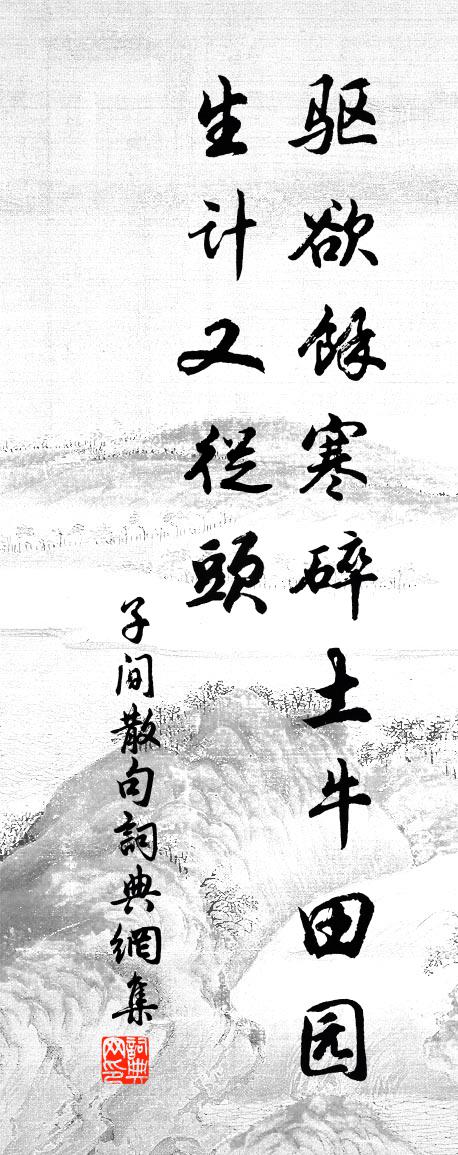 驱欲餘寒碎土牛田园
生计又從頭
子间散句詞典網集
詞典网印